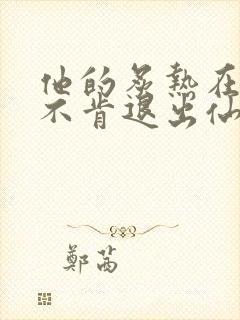 他的炙热在
不肯退出仙
鄭茜